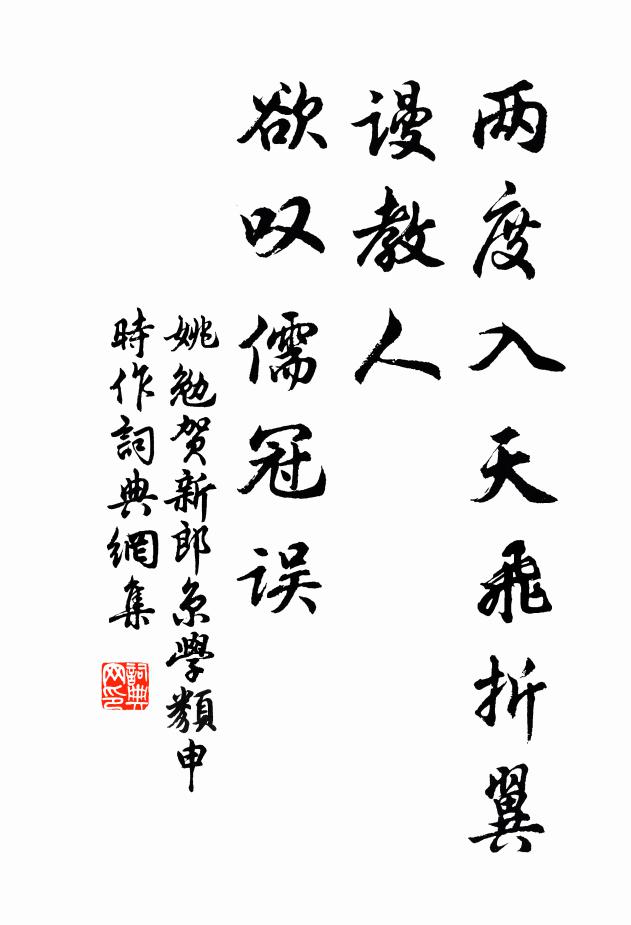 两度入天飛折翼
谩教人
欲叹儒冠误
姚勉贺新郎京学類申
時作詞典網集
詞典网印